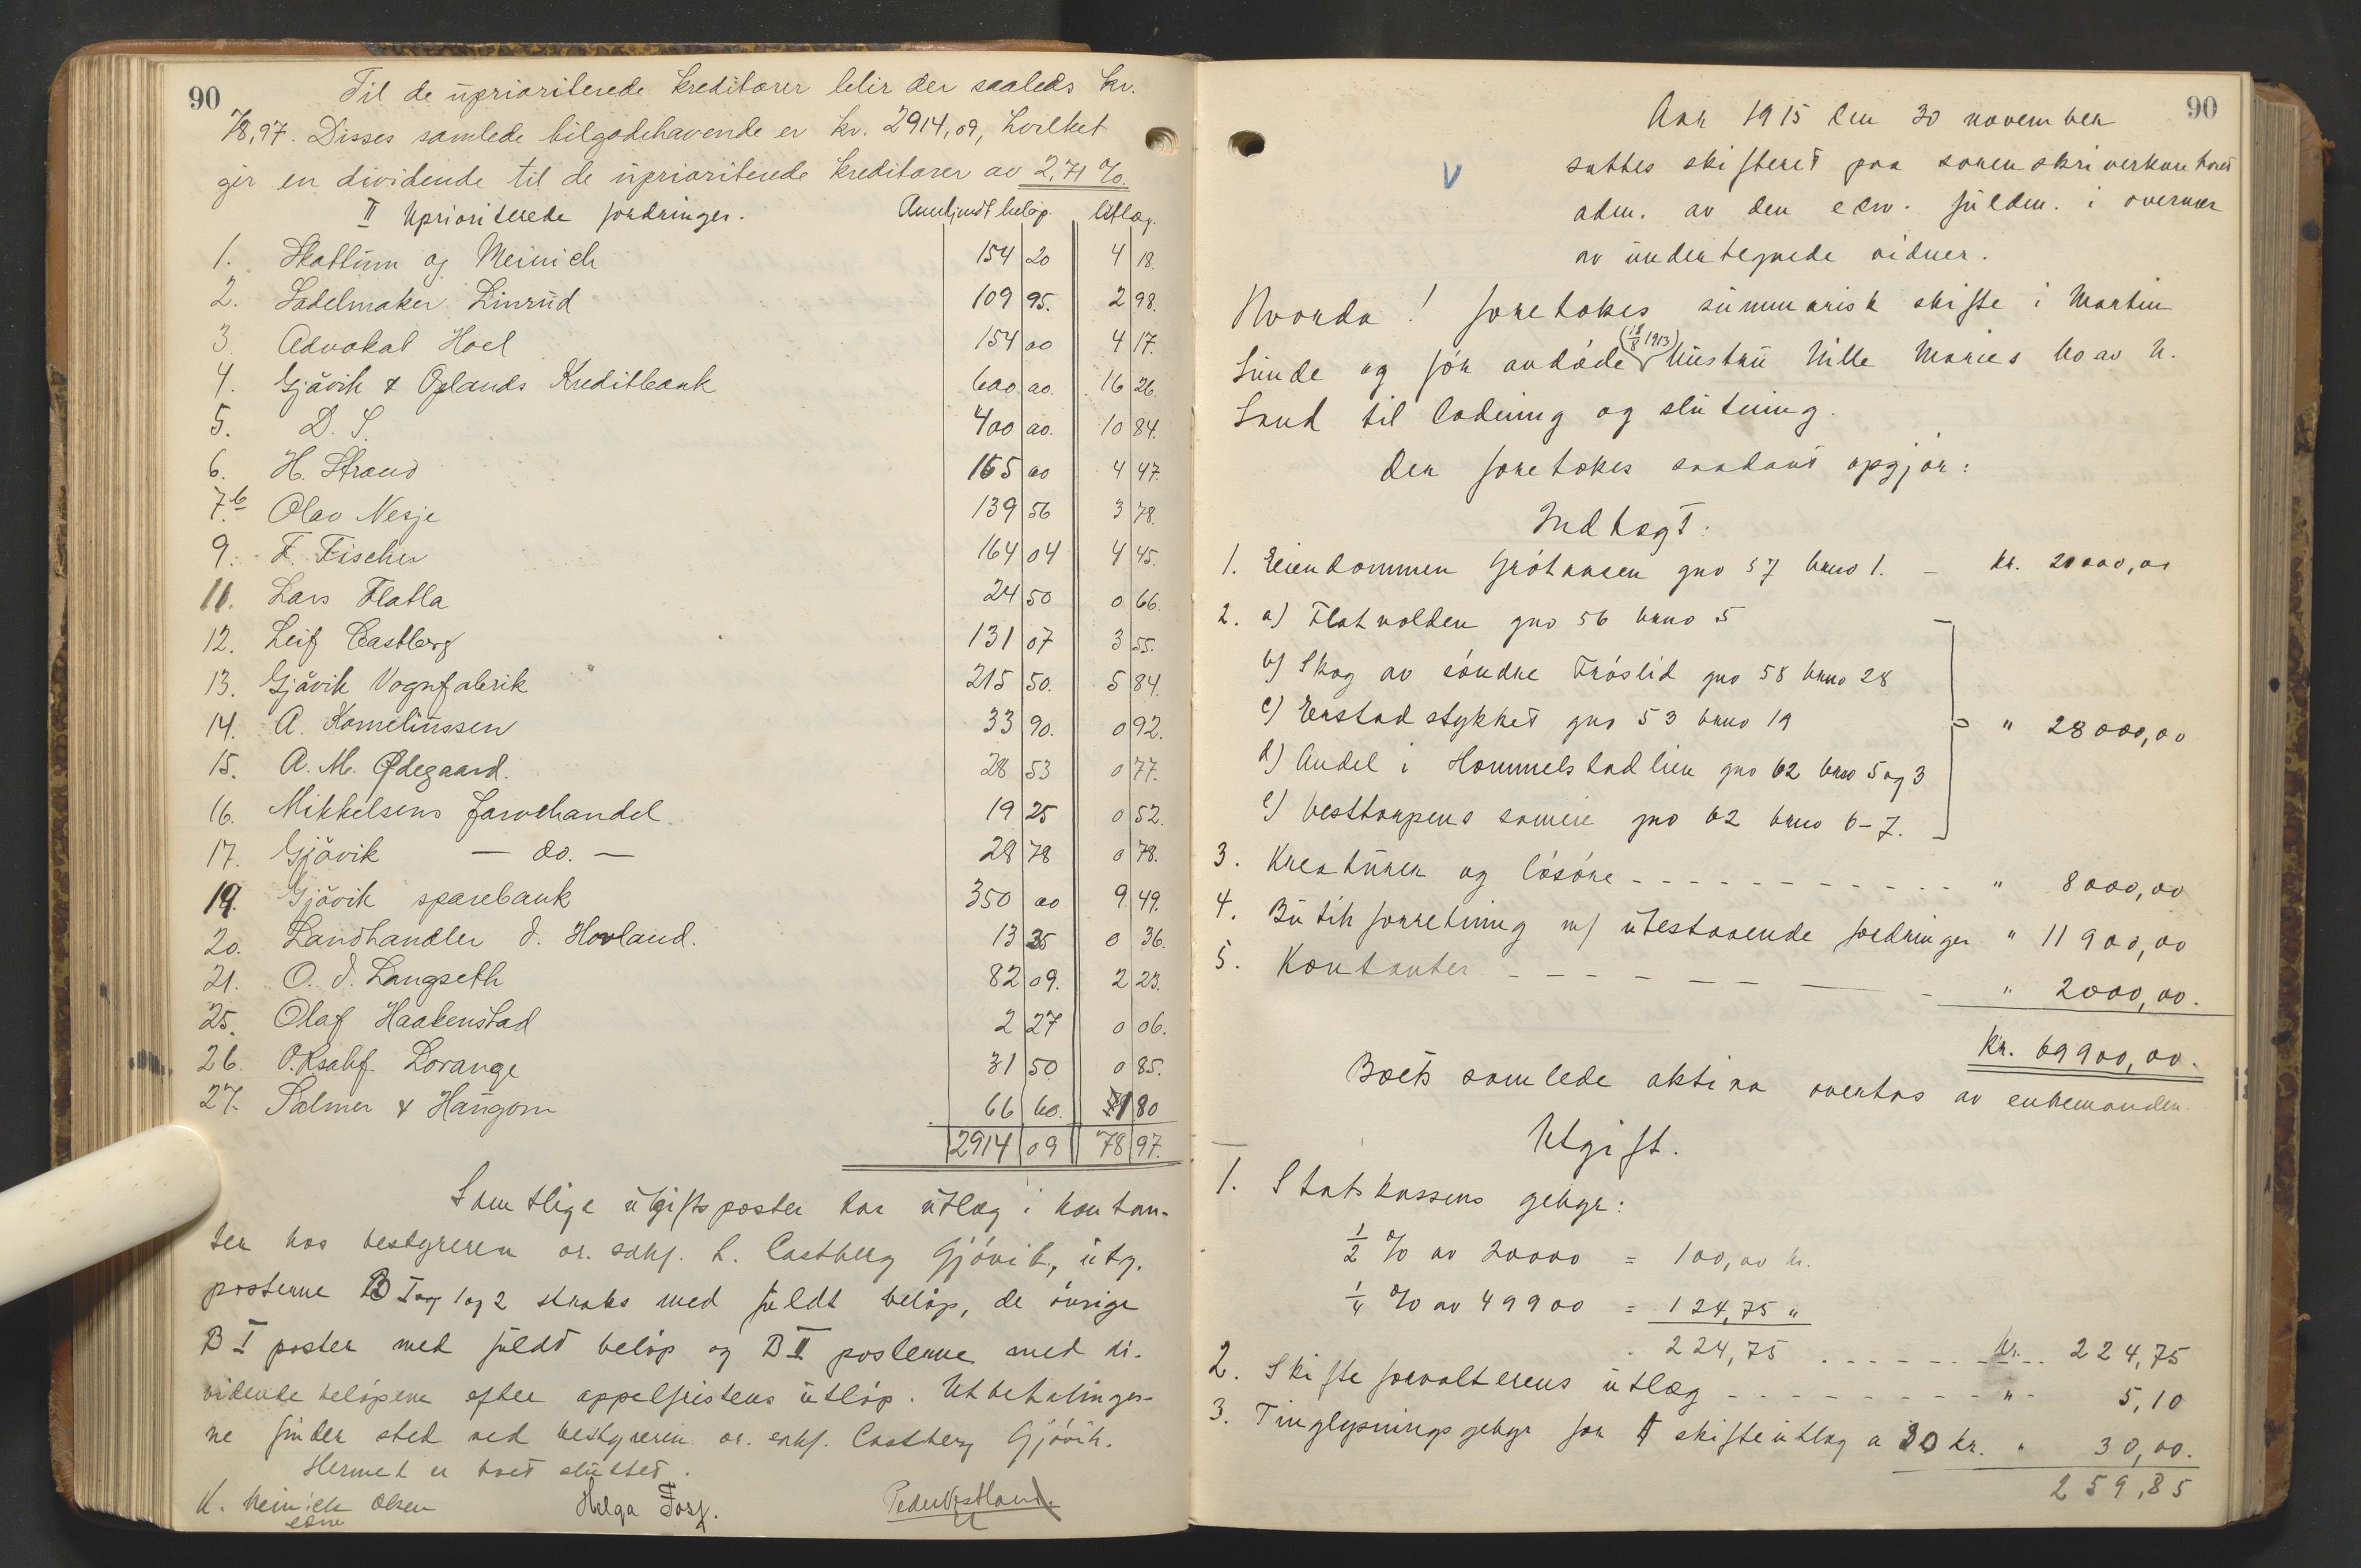 90
Til de uprioriterede kreditorer blir der saaledes kr.
78,97. Disses samlede tilgodehavende er kr. 2914,09, hvilket
gir en dividende til de uprioriterede kreditorer av 2,71 %.
II Uprioriterede fordringer. Anmeldt beløp. Utlæg.
1. Skattum og Meinich 154 20 4 18.
2. Sadelmaker Linrud 109 95. 2 98.
3 Advokat Hoel 154 00 4 17.
4. Gjøvik & Oplands Kreditbank 600 00. 16 26.
5. D. S. 400 00. 10 84.
6. H. Strand 165 00 4 47.
7.b Olav Nesje 139 56 3 78.
9. F. Fischer 164 04 4 45.
11. Lars Flatla 24 50 0 66.
12. Leif Castberg 131 07 3 55.
13. Gjøvik Vognfabrik 215 50. 5 84.
14. A. Korneliussen 33 90. 0 92.
15. A. M. Ødegaard. 28 53 0 77.
16. Mikkelsens farvehandel 19 25 0 52.
17. Gjøvik — do. — 28 78 0 78.
19. Gjøvik sparebank 350 00 9 49.
20. Landhandler J. Hovland. 13 35 0 36.
21. O. J. Langseth 82 09. 2 23.
25. Olaf Haakenstad 2 27 0 06.
26. O.Rsakf. Lorange 31 50 0 85.
27. Salmer & Haugom 66 60. 1 80
2914 09 78 97.
Samtlige utgiftsposter har utlæg i kontan-
ter hos bestyreren or. sakf. L. Castberg Gjøvik, utg.
posterne B I 1 og 2 straks med fuldt beløp, de øvrige
B I poster med fuldt beløp og B II posterne med di-
vidende beløpene efter appelfristens utløp. Utbetalinger-
ne finder sted ved bestyreren or. sakf. Castberg Gjøvik.
Hermed er boet sluttet.
K. Meinich Olsen Helga Fosf. Peder Vestland.
edsv
90
Aar 1915 den 30 november
sattes skifteret paa sorenskriverkontoret
adm. av den edsv. fuldm. i overvær
av undertegnede vidner.
V
Hvorda! foretokes summarisk skifte i Martin
Sunde og før avdøde (18/8 1913) hustru Nille Maries bo av N.
Land til lodning og slutning.
Der foretokes saadant opgjør:
Indtægt:
1. Eiendommen Grøtaasen gno 57 bruno 1. – kr. 20000,00
2. a) Flatvolden gno 56 bruno 5
b) Skog av søndre Frøslid gno 58 bruno 28
c) Erstadstykket gno 53 bruno 19 " 28000,00
d) Andel i Hommelstadlien gno 62 bruno 5 og 3
e) Vesttorpens sameie gno 62 bruno 6-7.
3. Kreaturer og løsøre - - - " 8000,00
4. Butikforretning m/ utestaaende fordringer " 11900,00
5. Kontanter - - - " 2000,00.
Kr. 69900,00.
Boets samlede aktiva overtas av enkemanden.
Utgift.
1. Statskassens gebyr:
1/2 % av 20000 = 100,00 kr.
1/4 % av 49900 = 124,75 "
224,75 - - - kr. 224,75
2. Skifteforvalterens utlæg - - - " - 5,10
3. Tinglysningsgebyr for 1 skifteutlæg a 30 kr. " 30,00.
259,85